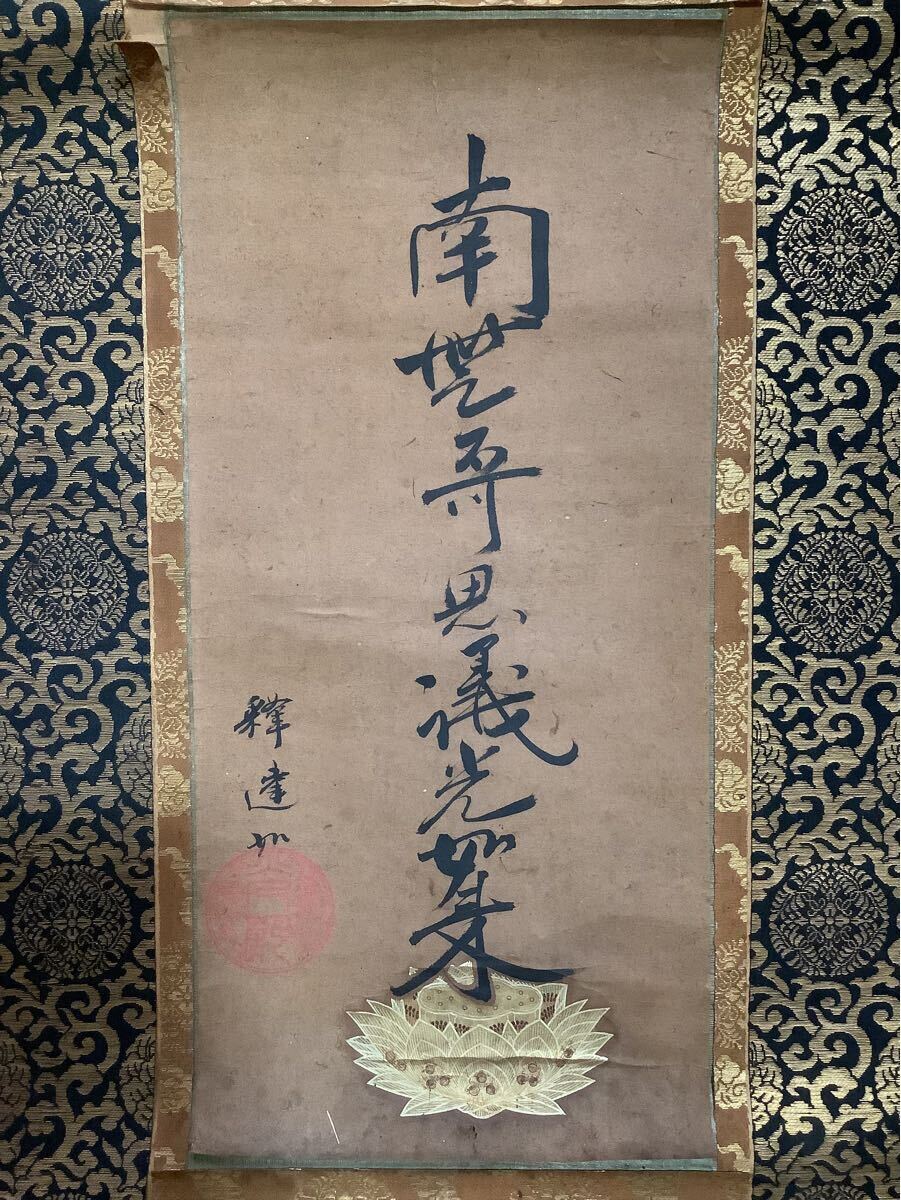 南無不思議光如來
釋達如